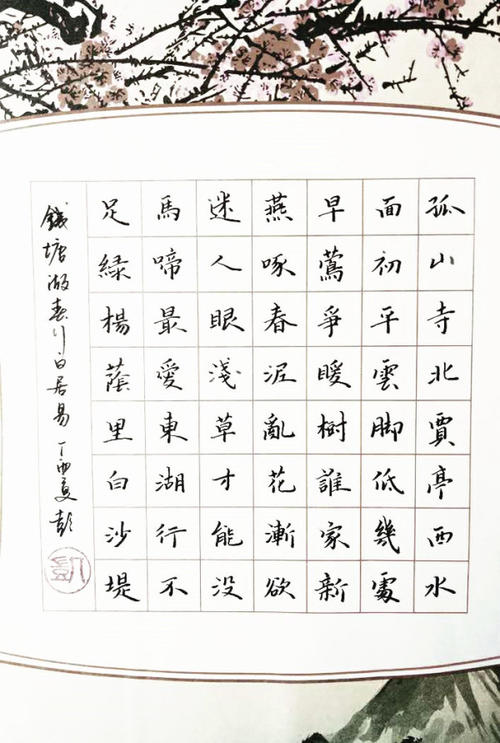 孤山寺北賈亭西水
面初平雲脚低幾處
早鶯爭暖樹誰家新
燕啄春泥亂花漸欲
迷人眼淺草才能没
馬啼最愛東湖行不
足緑楊蔭里白沙堤
錢塘湖春行白居易丁酉夏彭